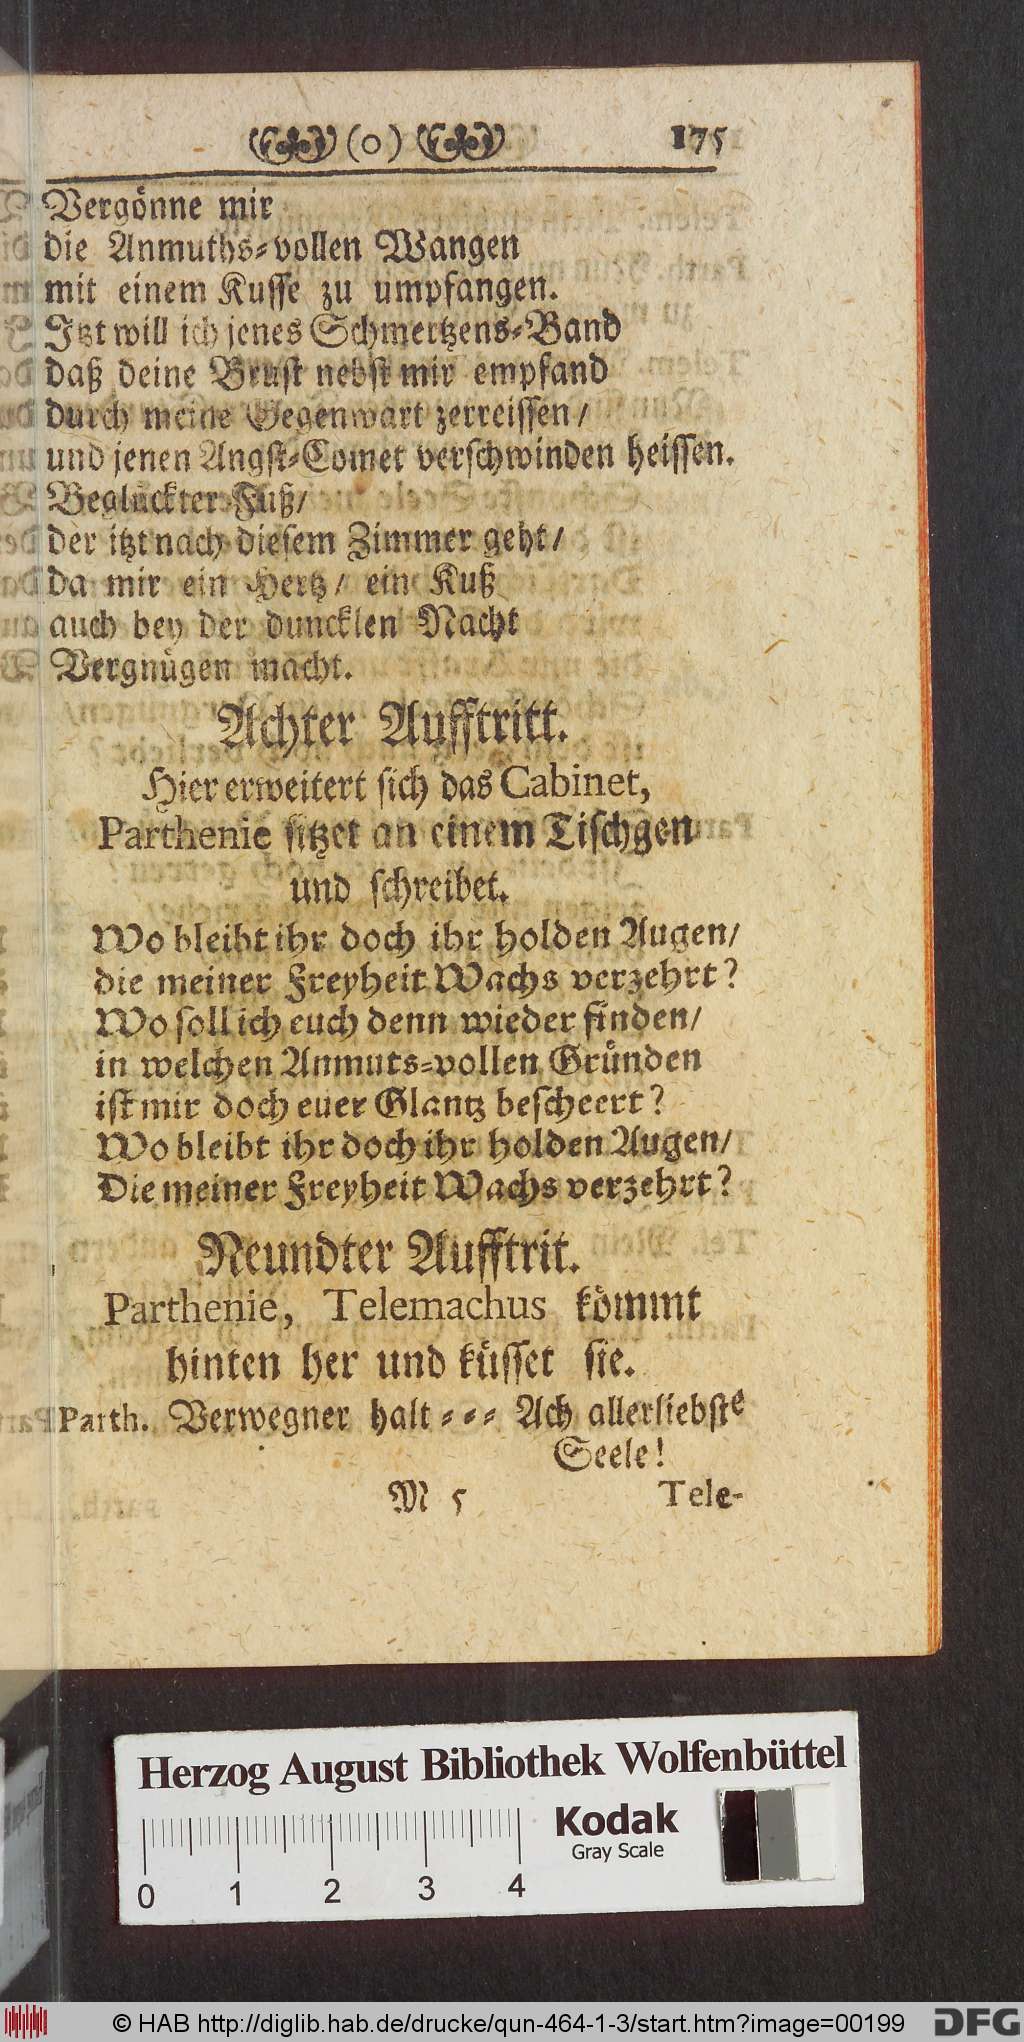 (o) 175
Vergönne mir
die Anmuths-vollen Wangen
mit einem Kusse zu umpfangen.
Itzt will ich jenes Schmertzens-Band
daß deine Brust nebst mir empfand
durch meine Gegenwart zerreissen/
und jenen Angst-Comet verschwinden heissen.
Beglückter Fuß/
der itzt nach diesem Zimmer geht/
da mir ein Hertz/ ein Kuß
auch bey der duncklen Nacht
Vergnügen macht.
Achter Aufftritt.
Hier erweitert sich das Cabinet,
Parthenie sitzet an einem Tischgen
und schreibet.
Wo bleibt ihr doch ihr holden Augen/
die meiner Freyheit Wachs verzehrt?
Wo soll ich euch denn wieder finden/
in welchen Anmuts-vollen Gründen
ist mir doch euer Glantz bescheert?
Wo bleibt ihr doch ihr holden Augen/
Die meiner Freyheit Wachs verzehrt?
Neundter Aufftrit.
Parthenie, Telemachus kömmt
hinten her und küsset sie.
Parth. Verwegner halt - - - Ach allerliebste
Seele!
M 5 Tele-
Herzog August Bibliothek Wolfenbüttel
Kodak
Gray Scale
0 1 2 3 4
© HAB http://diglib.hab.de/drucke/qun-464-1-3/start.htm?image=00199
DFG